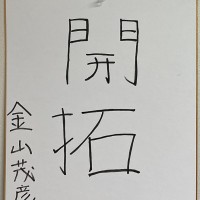 開拓
金山茂彦